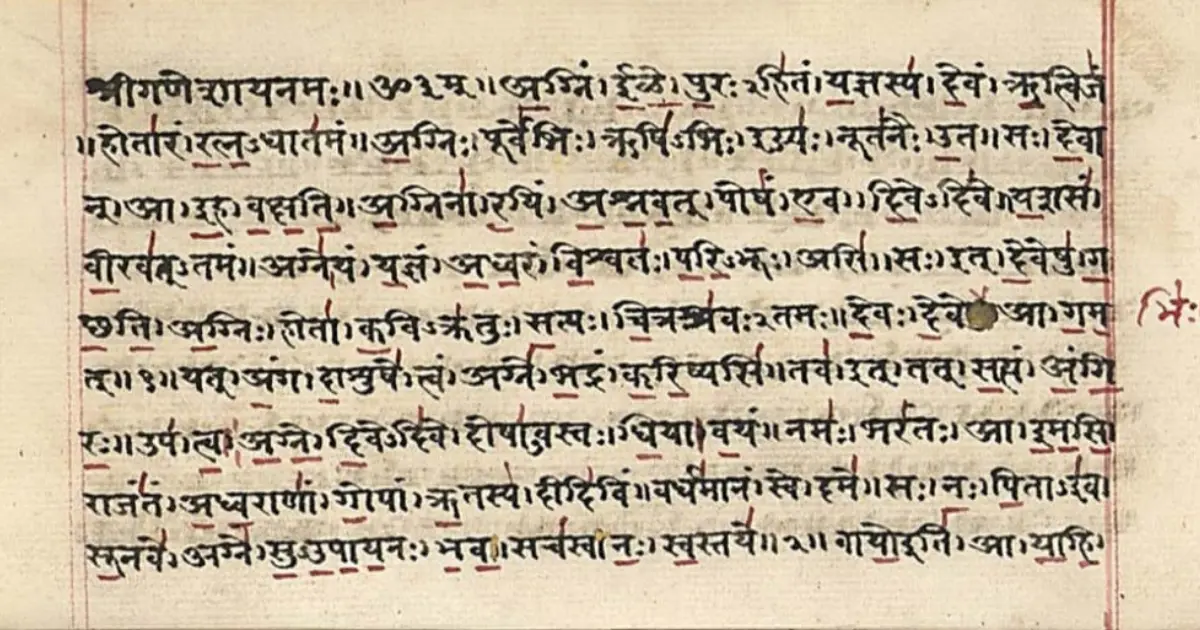 श्रीगणेशायनमः॥ॐ३म्॥अ॒ग्निं।ई॒ळे॒।पु॒रः२हि॑तं।य॒ज्ञस्य॑।दे॒वं।ऋ॒त्विजं॑
॥होता॑रं।र॒त्न॒ऽधात॑मं॥अ॒ग्निः।पूर्वे॑भिः।ऋषि॑ऽभिः।ईड्यः॑।नूत॑नैः।उ॒त॥सः।दे॒वा
न्।आ।इ॒ह।व॒क्ष॒ति॒॥अ॒ग्निना॑।र॒यिं।अ॒श्न॒व॒त्।पोषं॑।ए॒व।दि॒वेऽदि॑वे॥य॒शसं॑
वी॒रव॑त्ऽतमं॥अग्ने॑।यं।य॒ज्ञं।अ॒ध्व॒रं।वि॒श्वतः॑।प॒रि॒ऽभूः।असि॑॥सः।इत्।दे॒वेषु॑।ग॒
च्छ॒ति॒।अ॒ग्निः।होता॑।क॒विऽक्र॑तुः।स॒त्यः।चि॒त्रश्र॑वः२तमः॥दे॒वः।दे॒वे आ।ग॒म॒
भिः॑
त्॥१॥यत्।अं॒ग।दा॒शुषे॑।त्वं।अग्ने॑।भ॒द्रं।क॒रि॒ष्यसि॑॥तव॑।इत्।तत्।स॒त्यं।अं॒गि॒
रः॒॥उप॑।त्वा॒।अ॒ग्ने॒।दि॒वेऽदि॑वे।दोषा॑ऽवस्तः।धि॒या।व॒यं॥नमः॑।भरं॑तः।आ।इ॒म॒सि॒
राजं॑तं।अ॒ध्व॒राणां॑।गो॒पां।ऋ॒तस्य॑।दीदि॑विं॥वर्ध॑मानं।स्वे।दमे॑॥सः।नः॒।पि॒ताऽइ॑व
सू॒नवे॑।अग्ने॑।सु॒ऽउ॒पा॒य॒नः।भ॒व॒॥सच॑स्व।नः॒।स्व॒स्तये॑॥२॥वायो॒इति॑।आ।या॒हि॒।